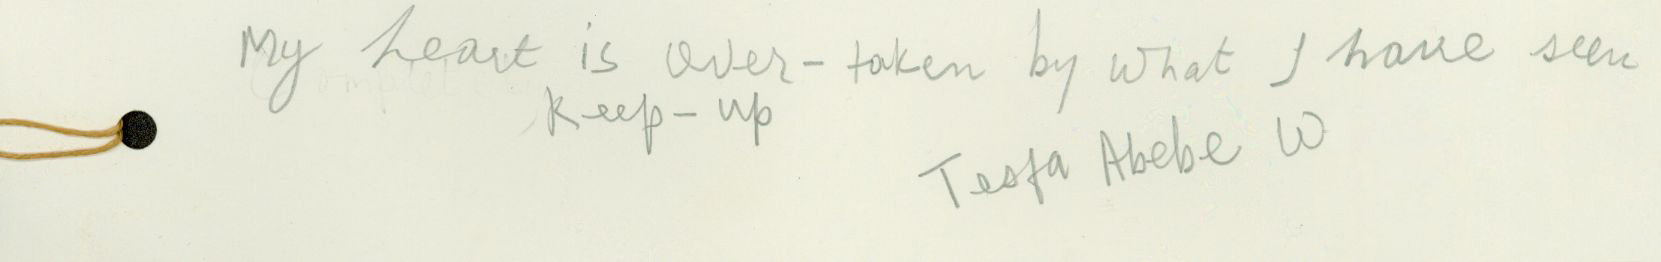 My heart is over-taken by what I have seen
Keep-up
Tesfa Abebe W